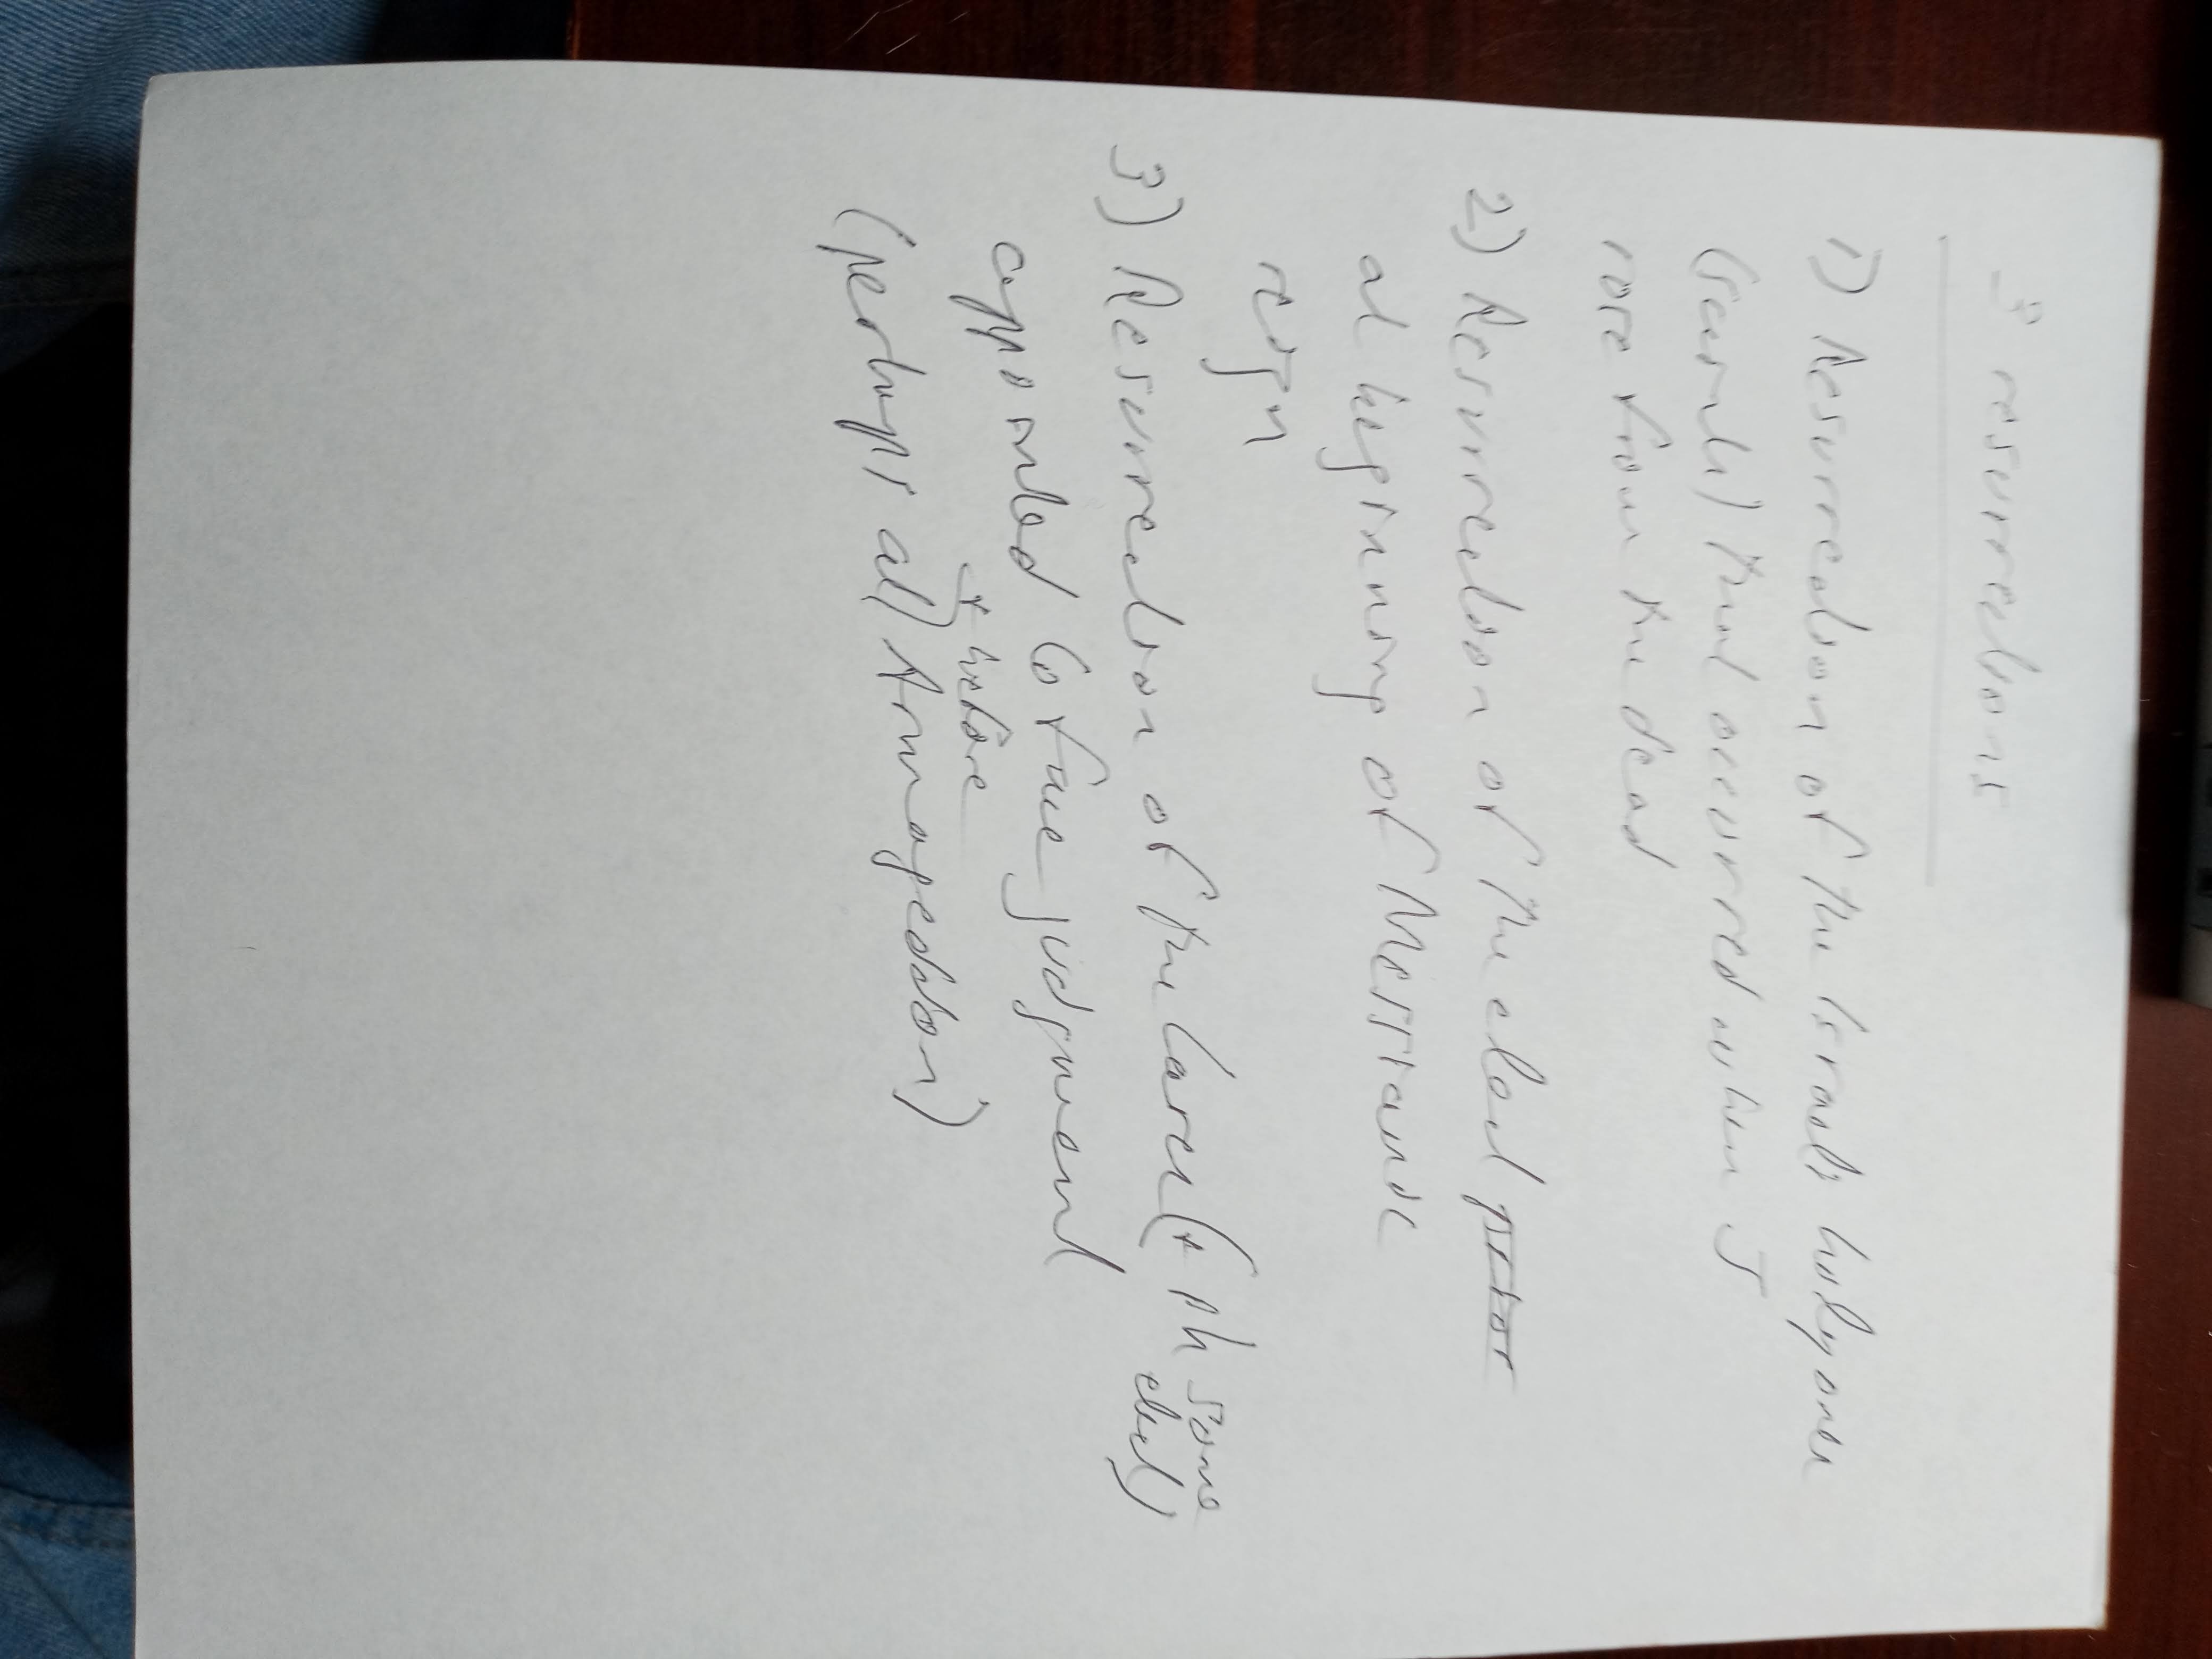 3 resurrections
1) Resurrection of the Israeli holy ones
(saints) that occurred when J
rose from the dead
2) Resurrection of the elect prior
at beginning of Messianic
reign
3) Resurrection of the (+ ph some
elect)
appointed to face judgment
+ before
(perhaps all Armageddon)